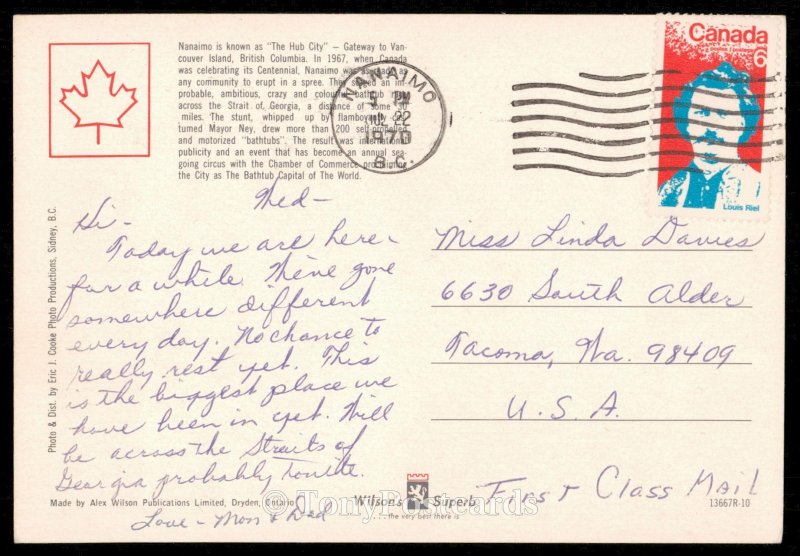 Nanaimo is known as "The Hub City" – Gateway to Van-
couver Island, British Columbia. In 1967, when Canada
was celebrating its Centennial, Nanaimo was as ready as
any community to erupt in a spree. They staged an im-
probable, ambitious, crazy and colourful bathtub race
across the Strait of Georgia, a distance of some 30
miles. The stunt, whipped up by flamboyantly cos-
tumed Mayor Ney, drew more than 200 self-propelled
and motorized "bathtubs". The result was international
publicity and an event that has become an annual sea-
going circus with the Chamber of Commerce proclaiming
the City as The Bathtub Capital of The World.
NANAIMO
PM
JUL 22
1970
B.C.
Canada
6
Louis Riel
Wed-
Hi-
Today we are here
for a while. We've gone
somewhere different
every day. No chance to
really rest yet. This
is the biggest place we
have been in yet. Will
be across the Straits of
Georgia probably tonite.
Love - Mom & Dad
Miss Linda Davies
6630 South Alder
Tacoma, Wa. 98409
U.S.A.
First Class Mail
Photo & Dist. by Eric J. Cooke Photo Productions, Sidney, B.C.
Made by Alex Wilson Publications Limited, Dryden, Ontario
Wilson's Superb
... the very best there is
13667R-10
©TonyPostcards